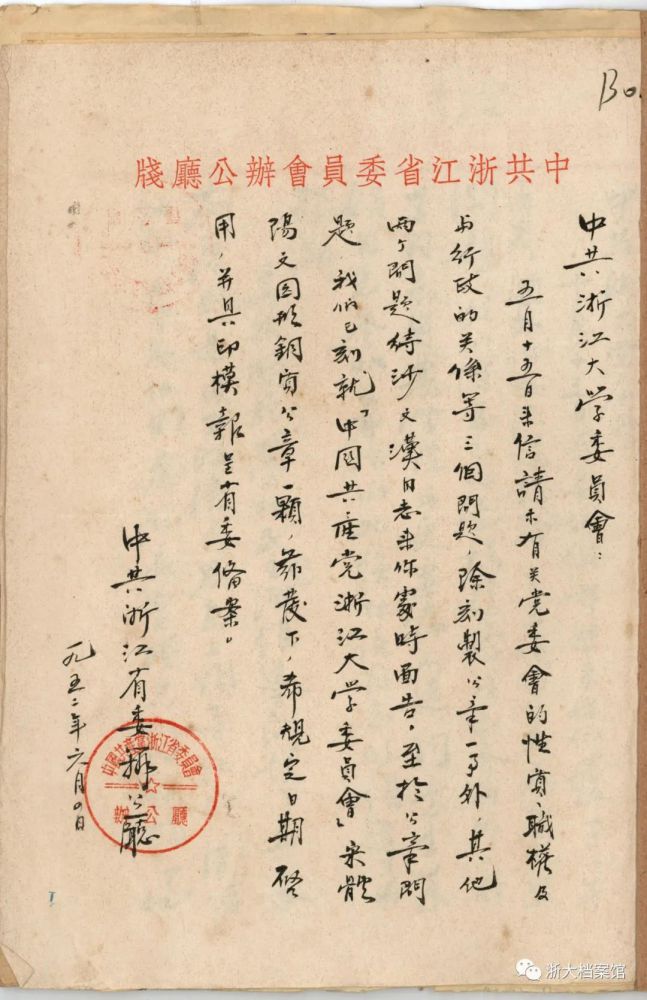 130
中共浙江省委員會辦公廳牋
中共浙江大学委員會:
五月十五日来信請示有关党委會的性質、職權及
与行政的关係等三個問題，除刻製公章一事外，其他
两个問題待沙文漢同志来你處時面告，至於公章問
題，我们已刻就「中國共產党浙江大学委員會」宋體
陽文图形銅質公章一顆，茲发下，希規定日期啓
用，并具印模報呈省委俻案。
中共浙江省委辦公廳
一九五二年六月 日
中國共產黨浙江省委員會
辦公廳
浙大档案馆